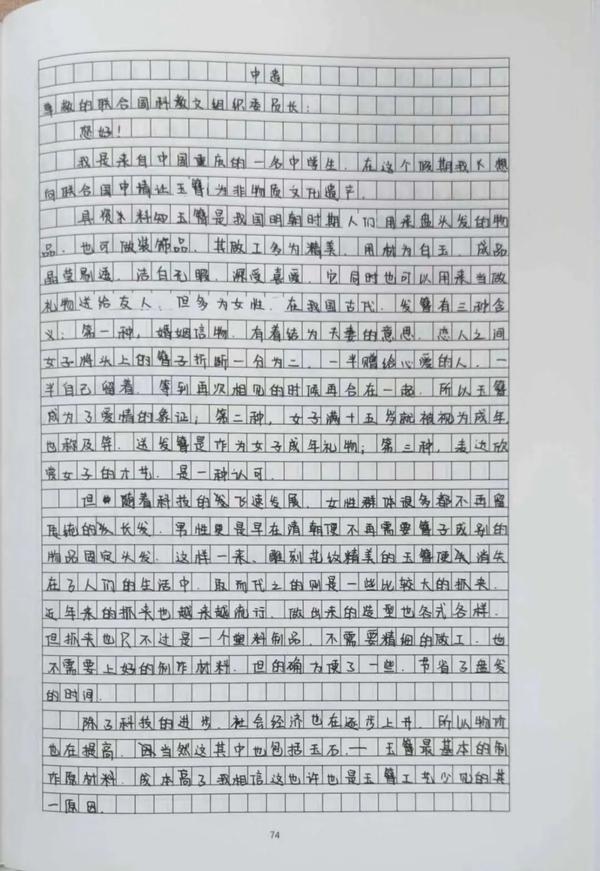 申遗
尊敬的联合国科教文组织委员长：
您好！
我是来自中国重庆的一名中学生．在这个假期我想
向联合国申请让玉簪为非物质文化遗产．
具资料知玉簪是我国明朝时期人们用来盘头发的物
品．也可做装饰品．其做工多为精美．用材为白玉．成品
晶莹剔透．洁白无暇．深受喜爱．它同时也可以用来当做
礼物送给友人．但多为女性．在我国古代．发簪有三种含
义：第一种，婚姻信物．有着结为夫妻的意思．恋人之间
女子将头上的簪子折断一分为二．一半赠给心爱的人．一
半自己留着．等到再次相见的时候再合在一起．所以玉簪
成为了爱情的象证；第二种，女子满十五岁就被视为成年．
也称及笄．送发簪是作为女子成年礼物；第三种，表达欣
爱女子的才艺．是一种认可．
但随着科技的飞速发展．女性群体很多都不再留
传统的长发．男性更是早在清朝便不再需要簪子或别的
物品固定头发．这样一来．雕刻花纹精美的玉簪便消失
在了人们的生活中．取而代之的则是一些比较大的抓夹．
近年来的抓夹也越来越流行．做出来的造型也各式各样．
但抓夹也只不过是一个塑料制品．不需要精细的做工．也
不需要上好的制作材料．但的确方便了一些．节省了盘发
的时间．
除了科技的进步．社会经济也在逐步上升．所以物价
也在提高．当然这其中也包括玉石．——玉簪最基本的制
作原材料．成本高了我相信这也许也是玉簪工艺少见的其
一原因．
74